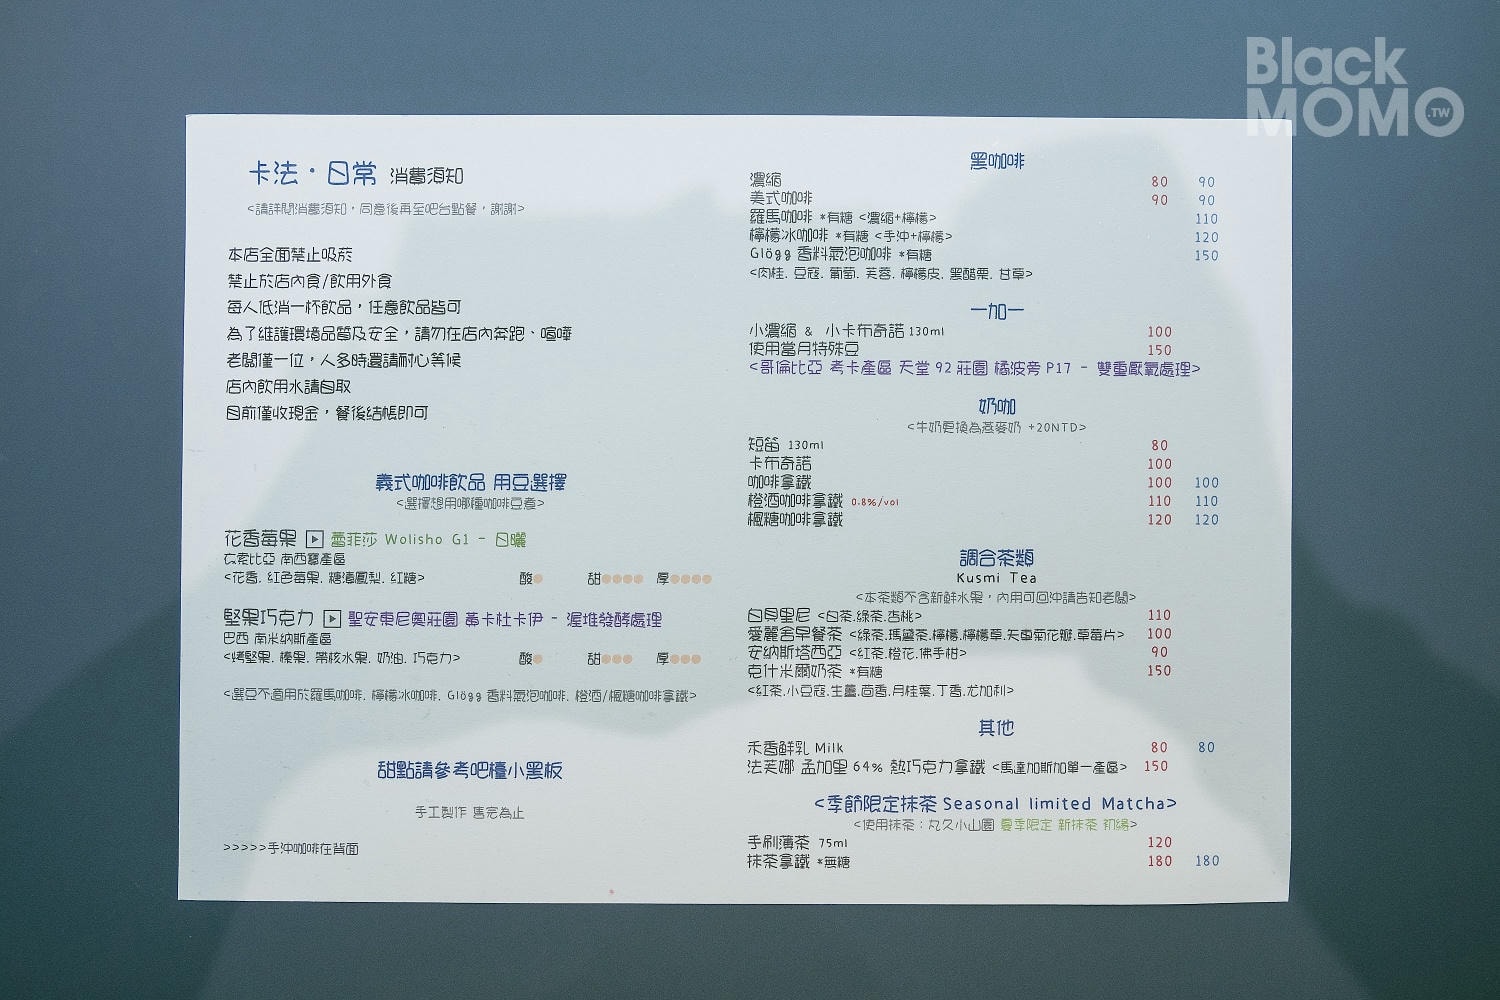 Black
MOMO.TW
卡法・日常 消費須知
<請詳閱消費須知，同意後再至吧台點餐，謝謝>
本店全面禁止吸菸
禁止於店內食/飲用外食
每人低消一杯飲品，任意飲品皆可
為了維護環境品質及安全，請勿在店內奔跑、喧嘩
老闆僅一位，人多時還請耐心等候
店內飲用水請自取
目前僅收現金，餐後結帳即可
義式咖啡飲品 用豆選擇
<選擇想用哪種咖啡豆煮>
花香莓果 蕾菲莎 Wolisho G1 - 日曬
衣索比亞 南西寶產區
<花香. 紅色莓果. 糖漬鳳梨. 紅糖> 酸● 甜●●●● 厚●●●●
堅果巧克力 聖安東尼奧莊園 黃卡杜卡伊 - 渥堆發酵處理
巴西 南米納斯產區
<烤堅果. 榛果. 帶核水果. 奶油. 巧克力> 酸● 甜●●● 厚●●●
<選豆不適用於羅馬咖啡. 檸檬冰咖啡. Glögg 香料氣泡咖啡. 橙酒/楓糖咖啡拿鐵>
甜點請參考吧檯小黑板
手工製作 售完為止
>>>>>手沖咖啡在背面
黑咖啡
濃縮 80 90
美式咖啡 90 90
羅馬咖啡 *有糖 <濃縮+檸檬> 110
檸檬冰咖啡 *有糖 <手沖+檸檬> 120
Glögg 香料氣泡咖啡 *有糖 150
<肉桂. 豆蔻. 葡萄. 芙蓉. 檸檬皮. 黑醋栗. 甘草>
一加一
小濃縮 & 小卡布奇諾 130ml 100
使用當月特殊豆 150
<哥倫比亞 考卡產區 天堂 92 莊園 橘波旁 P17 - 雙重厭氧處理>
奶咖
<牛奶更換為燕麥奶 +20NTD>
短笛 130ml 80
卡布奇諾 100
咖啡拿鐵 100 100
橙酒咖啡拿鐵 0.8%/vol 110 110
楓糖咖啡拿鐵 120 120
調合茶類
Kusmi Tea
<本茶類不含新鮮水果，內用可回沖請告知老闆>
白貝里尼 <白茶.綠茶.杏桃> 110
愛麗舍早餐茶 <綠茶.瑪黛茶.檸檬.檸檬草.矢車菊花瓣.草莓片> 100
安納斯塔西亞 <紅茶.橙花.佛手柑> 90
克什米爾奶茶 *有糖 150
<紅茶.小豆蔻.生薑.茴香.月桂葉.丁香.尤加利>
其他
禾香鮮乳 Milk 80 80
法芙娜 孟加里 64% 熱巧克力拿鐵 <馬達加斯加單一產區> 150
<季節限定抹茶 Seasonal limited Matcha>
<使用抹茶：丸久小山園 夏季限定 新抹茶 初綠>
手刷薄茶 75ml 120
抹茶拿鐵 *無糖 180 180